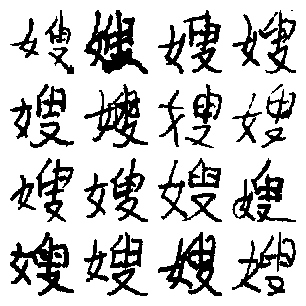 嫂嫂嫂嫂
嫂嫂嫂嫂
嫂嫂嫂嫂
嫂嫂嫂嫂